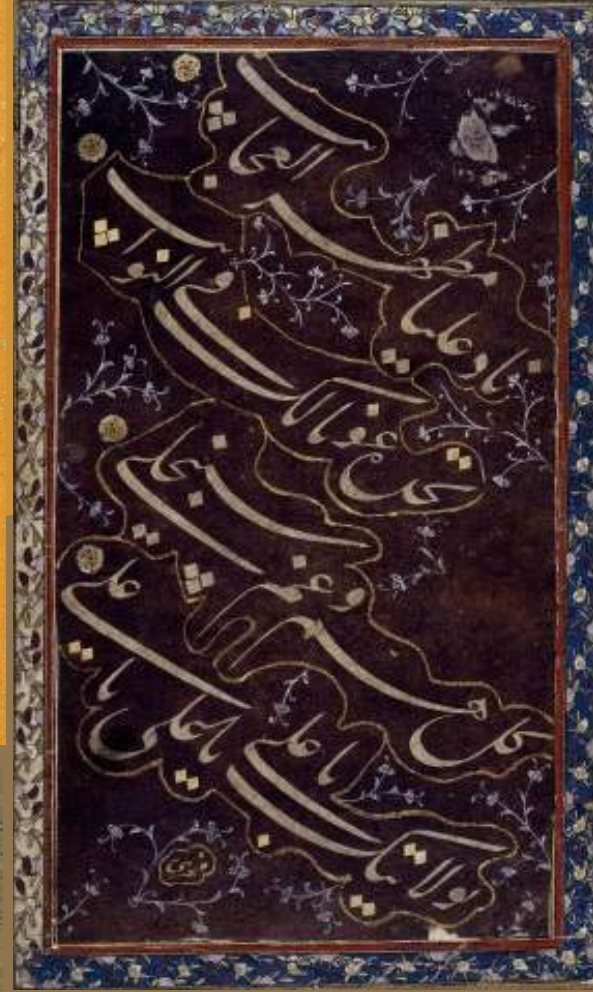 ناد علیا مظهر العجایب
تجده عونا لک فی النوایب
کل هم و غم سینجلی
بولایتک یا علی یا علی یا علی